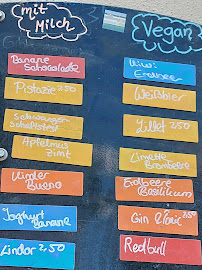 mit
Milch
Banane
Schocolade
Pistazie 2.50
Schwanger-
schaftstest
Apfelmus
Zimt
Kinder
Bueno
Joghurt
Banane
Lindor 2.50
Vegan
Erdbeer
Weißbier
Lillet 2.50
Limette
Brombeere
Erdbeere
Basilikum
Gin & Tonic 2.50
Redbull